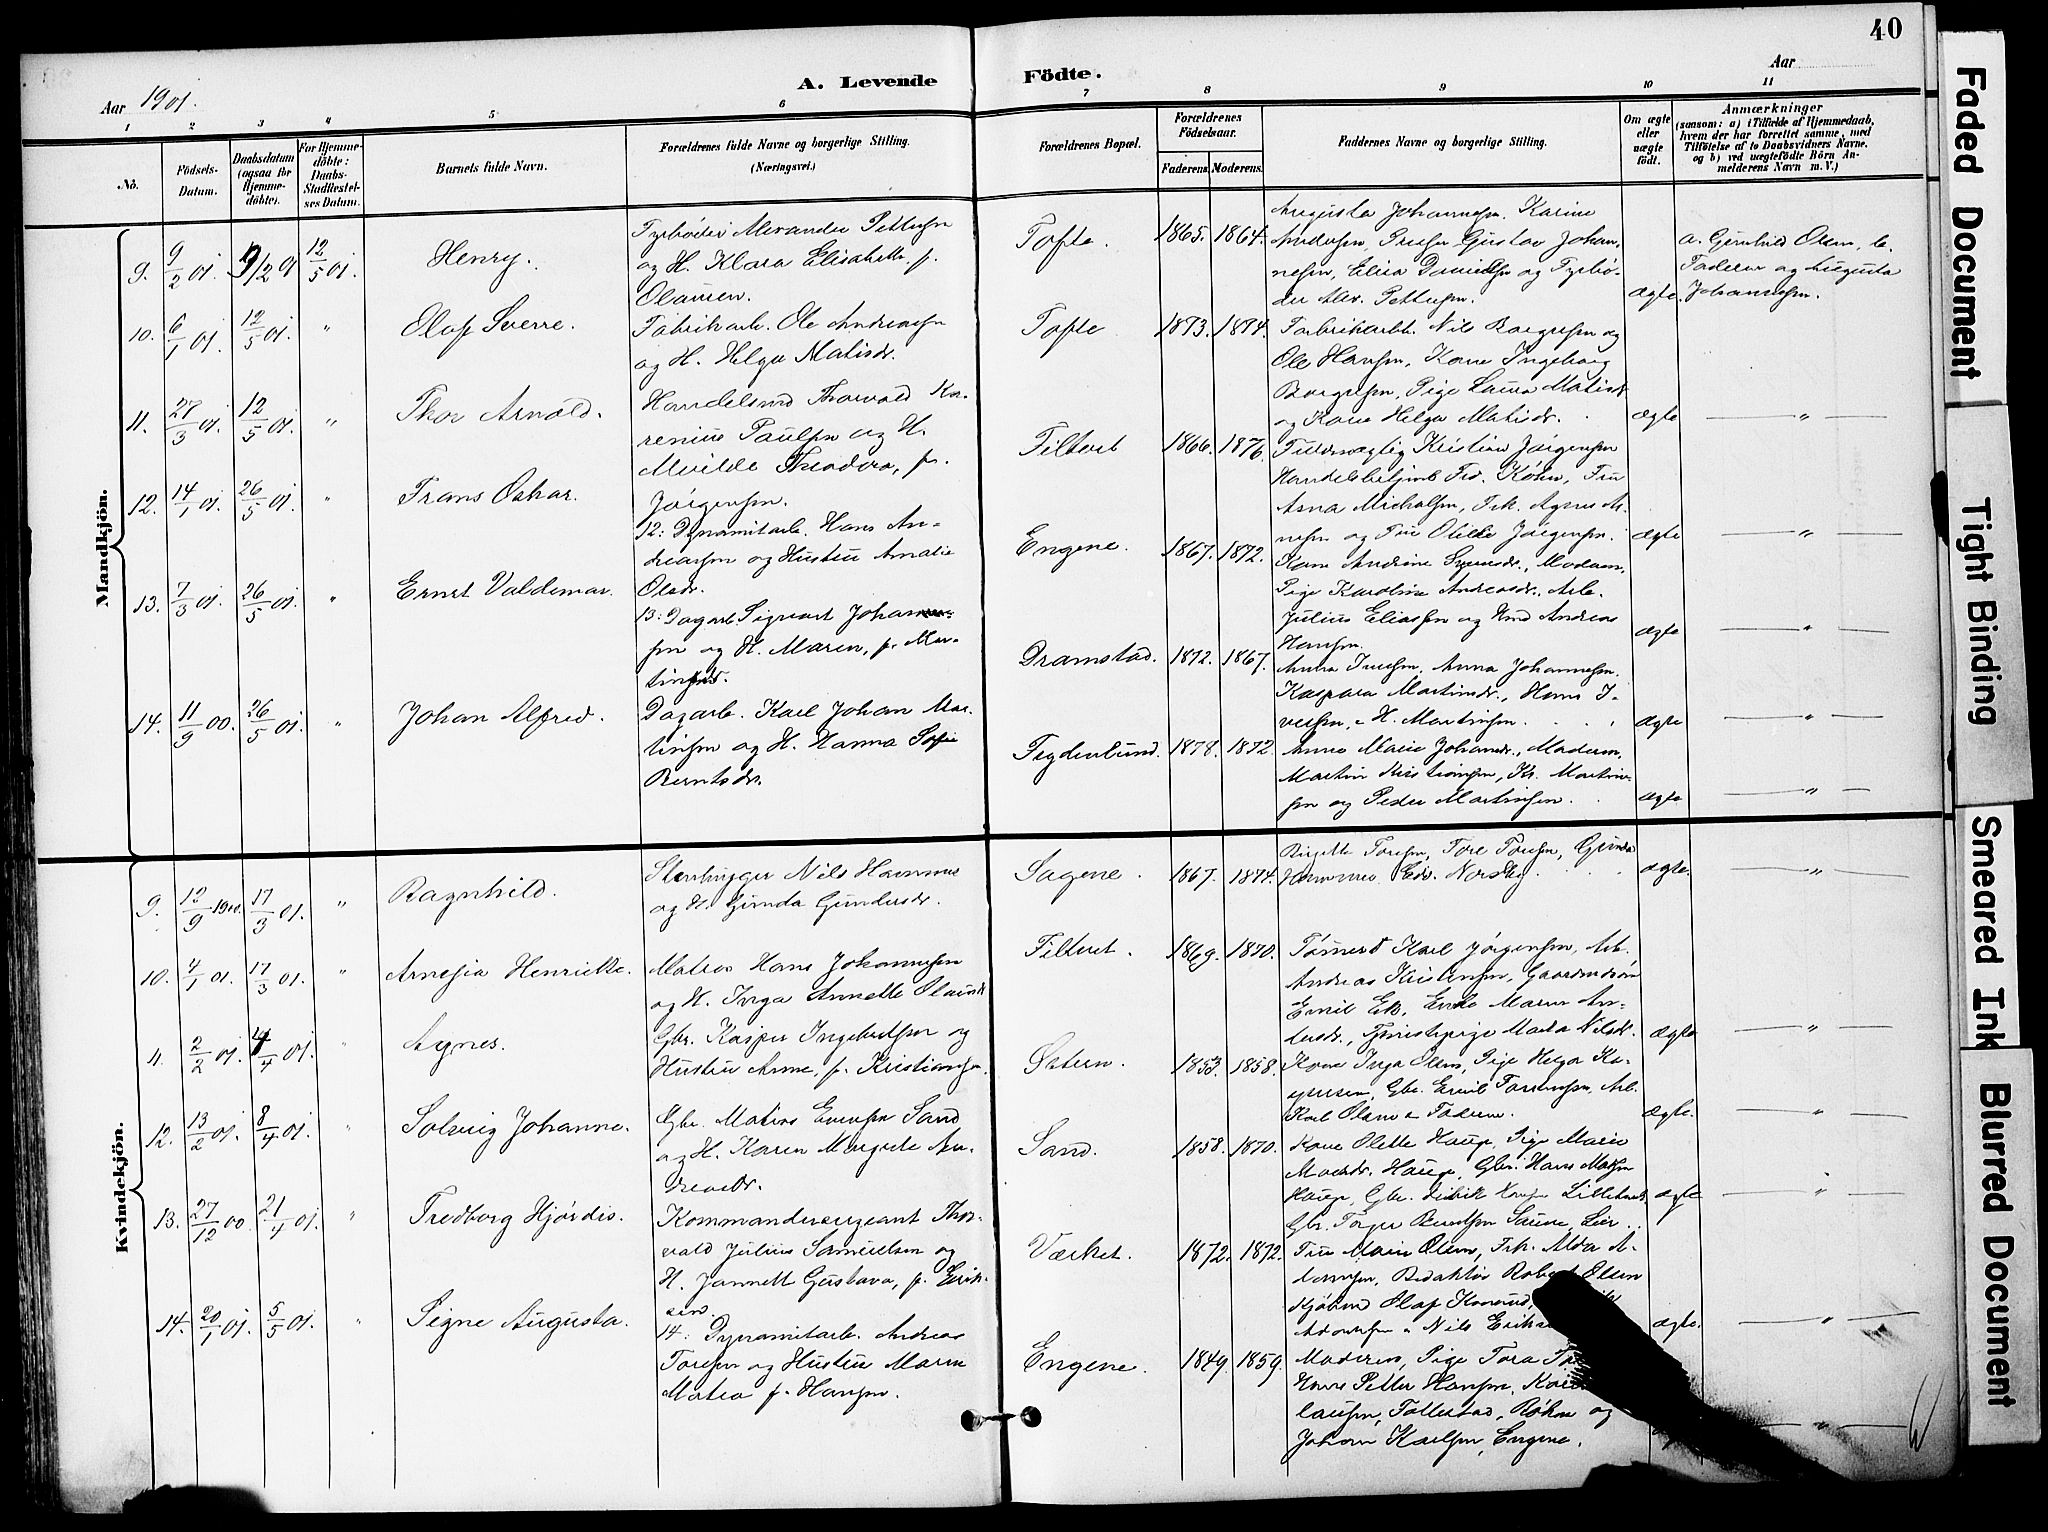 40
A. Levende Födte.
Aar 1901.
Aar
1 2 3 4 5 6 7 8 9 10 11
No.
Födsels-Datum.
Daabsdatum (ogsaa for Hjemme-döbte).
For Hjemme-döbte: Daabs-Stadfæstel-ses Datum.
Barnets fulde Navn.
Forældrenes fulde Navne og borgerlige Stilling.
(Næringsvei.)
Forældrenes Bopæl.
Forældrenes Födselsaar.
Faderens. Moderens.
Faddernes Navne og borgerlige Stilling.
Om ægte eller uægte födt.
Anmærkninger
(saasom: a) i Tilfælde af Hjemmedaab, hvem der har forrettet samme, med Tilföielse af to Daabsvidners Navne. og b) ved uægtefödte Börn An-melderens Navn m. V.)
Mandkjön.
9. 9/2 01. 9/2 01 12/5 01. Henry.
Fyrböter Alexander Pettersen
og H. Klara Elisabeth, f.
Olausen.
Tofte. 1865. 1864.
Augusta Johannesen. Karine
Andersen, Gustav Johan-
nesen, Elisa Danielsen og Fyrbö-
der Alex. Pettersen.
ægte
Olsen, b.
Faderen og Augusta
Johannesen.
10. 6/1 01. 12/5 01. " Olaf Sverre.
Fabrikarb. Ole Andreasen
og H. Helga Matisdr.
Tofte 1873. 1874.
Fabrikarb. Nils Borgersen og
Ole Hansen, Kone Ingeborg
Borgersen, Pige Laura Matisdr
og Kone Helga Matisdr.
ægte "
11. 27/3 01. 12/5 01. " Thor Arnold.
Handelsmd Thorvald Ka-
renius Paulsen og H.
Mvilde Theodora, f.
Jörgensen.
Filtvet 1866. 1876.
Fuldmægtig Kristian Jörgensen
Handelsbetjent Fr. Köhn, Fru
Anna Michalsen, Frk. Agnes A.
nesen og Fru Otilie Jörgensen.
ægte "
12. 14/1 01. 26/5 01. " Frans Oskar.
12: Dynamitarb. Hans An-
dreassen og Hustru Amalie
Olsdr.
Engene. 1867. 1872.
Kone Andrine Syversdr., Moderen,
Pige Karoline Andreasdr. Arb.
Julius Eliassen og Andreas
Hansen.
ægte "
13. 7/3 01. 26/5 01. " Ernst Valdemar.
13: Dagarb. Sigvart Johanne-
sen og H. Maren, f. Mar-
tinsdr.
Dramstad. 1872. 1867.
Anna Johannesen.
Kaspara Martinsdr., Hans I-
versen, H. Martinsen.
ægte "
14. 11/9 00. 26/5 01. " Johan Alfred.
Dagarb. Karl Johan Mar-
tinsen og H. Hanna Sofie
Berntsdr.
Fegdenlund. 1878. 1872.
Anne Marie Johansdr., Moderen,
Martin Kristiansen, Kr. Martin-
sen og Peder Martinsen.
ægte "
Kvindekjön.
9. 12/9 1900. 17/3 01. " Ragnhild.
Stenhugger Nils Hammer
og H. Gunda Gundersdr.
Sagene. 1867. 1874.
Birgitte Toresen, Tore Toresen, Gunda
Hammer
ægte. "
10. 4/1 01. 17/3 01. " Arnesia Henriette.
Matros Hans Johannesen
og H. Inga Annette Olausdr
Filtvet. 1869. 1870.
Tömerd Karl Jörgensen, Arb.
Andreas Kristensen, Gaardmand
Emil Ek, Enke Maren An-
dersdr., Tjenestepige Marta Nilsdr.
ægte "
11. 2/2 01. 4/4 01. " Agnes.
Gbr. Kasper Ingebretsen og
Hustru Anne, f. Kristiansen.
Sætern. 1853. 1858.
Kone Inga Olsen, Pige Helga Ka-
spersen, Gbr. Emil Torstensen, Arb.
Karl Olsen & Faderen.
ægte. "
12. 13/2 01. 8/4 01. " Solveig Johanne.
Gbr. Matias Evensen Sand
og H. Karen Margrete An-
dreasdr.
Sand. 1858. 1870.
Kone Olette Hauge, Pige Marie
Madsdr. Hauge, Gbr. Hans Madsen
Hauge, Gbr.
Gbr. Torger Berntsen Saueue, Lier.
ægte "
13. 27/12 00. 21/4 01. " Fredborg Hjördis.
Kommandersergeant Thor-
vald Julius Samuelsen og
H. Jannett Gustava, f. Erik-
sen.
Værket. 1872. 1872.
Fru Marie Olsen, Frk. Alda A-
damsen, Redaktör Robert Olsen
Kjöbmd Olaf
Adamsen & Nils Eriks
ægte. "
14. 20/1 01. 5/5 01. " Signe Augusta.
14: Dynamitarb. Andreas
Toresen og Hustru Maren
Matea f. Hansen.
Engene. 1849. 1859.
Moderen, Pige Tora
Petter Hansen, Karl
lausen, Tollestad, Röken og
Johan Karlsen, Engene.
"
Faded Document
Tight Binding
Smeared Ink
Blurred Document